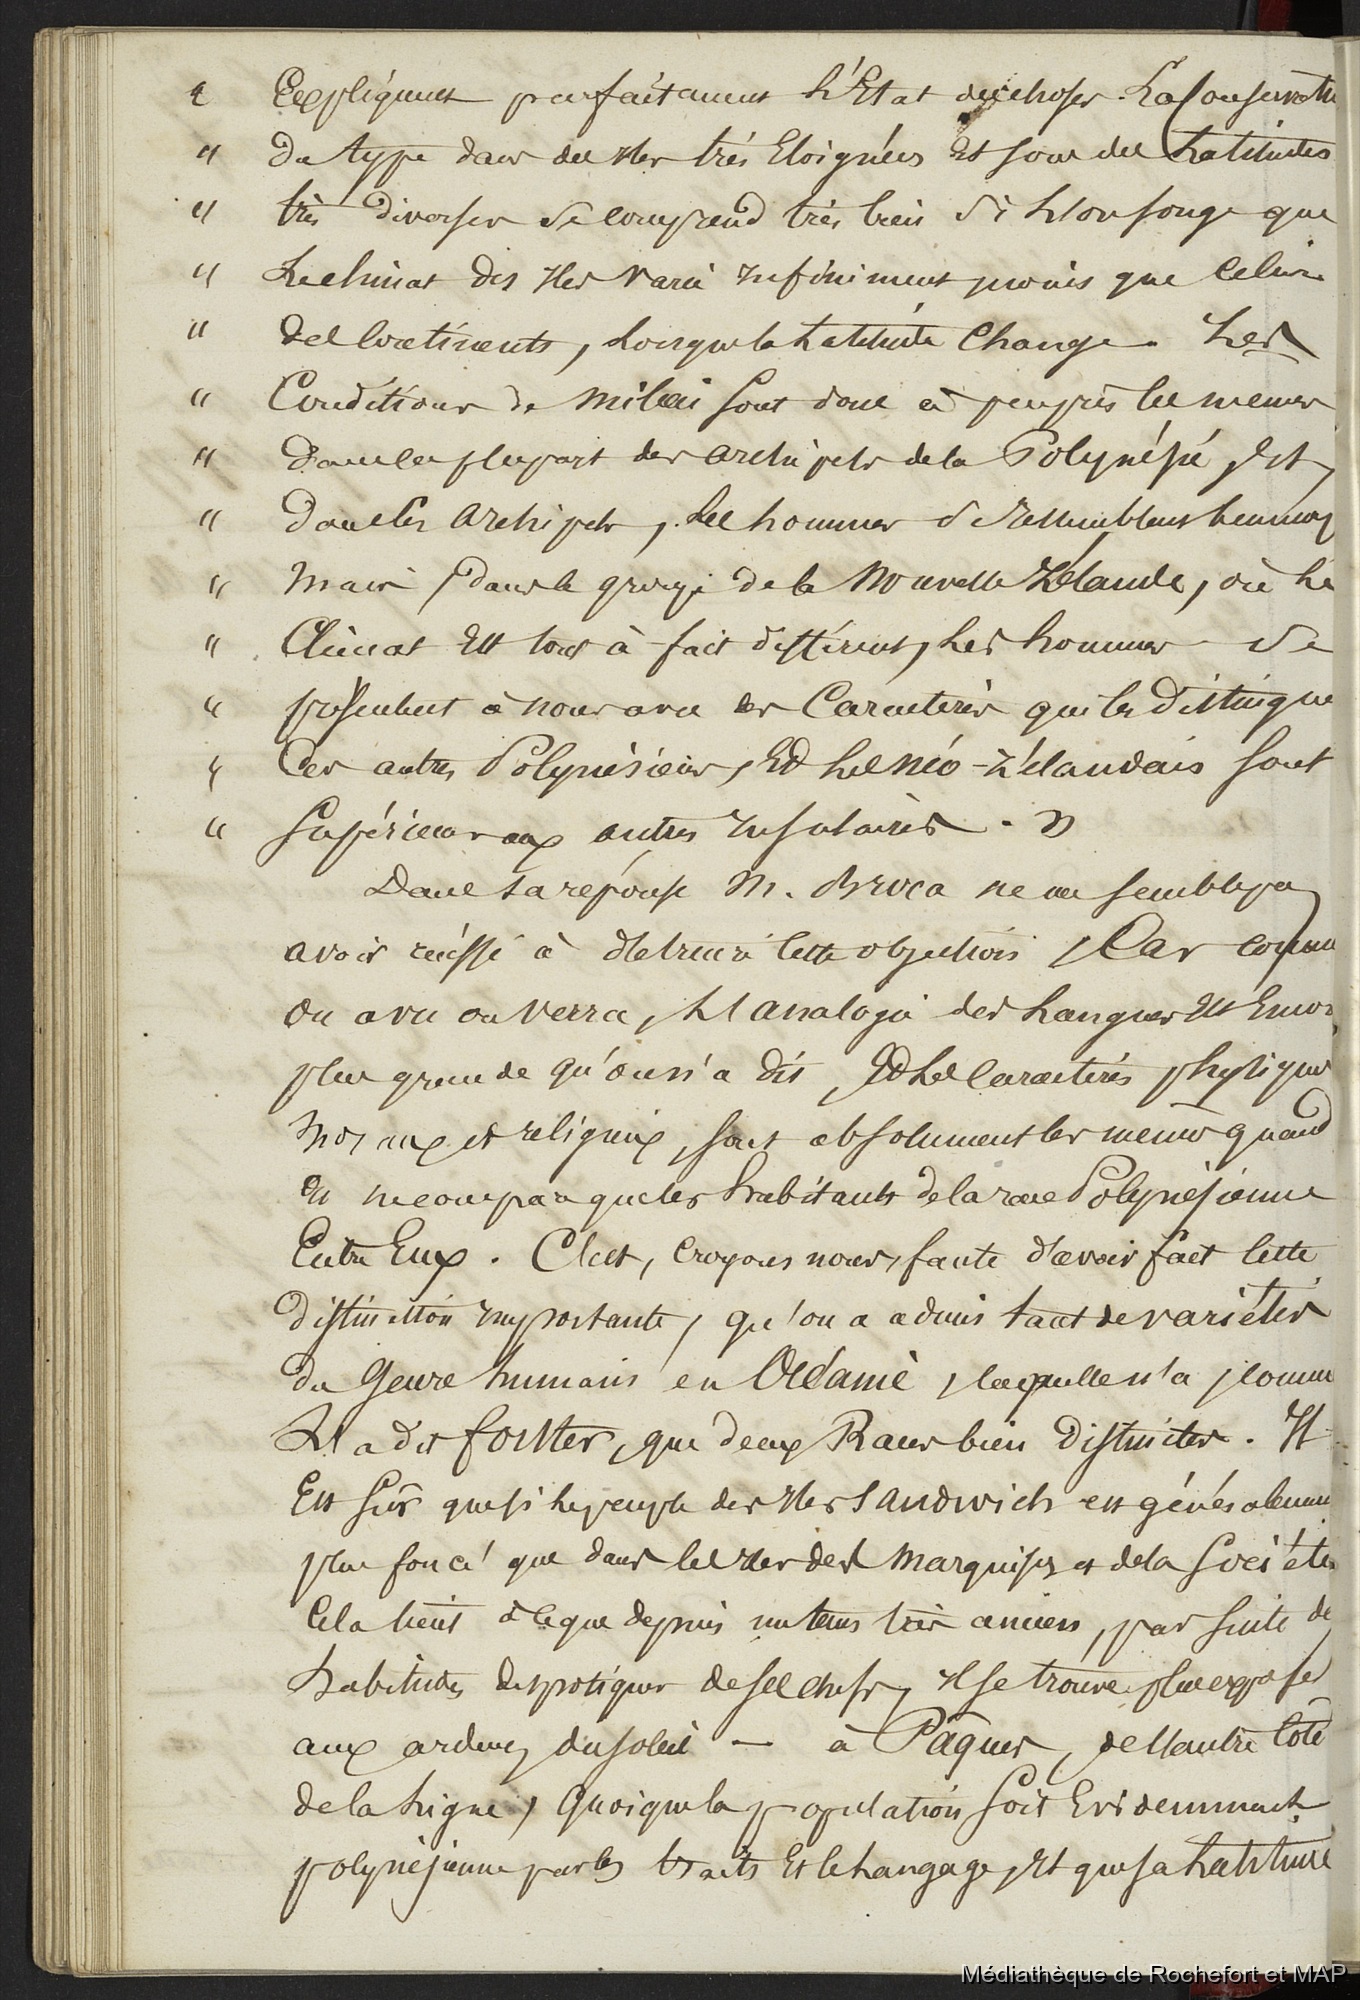 " Expliquent parfaitement l'Etat des choses. La Conservation
" du type dans des Iles très Eloignées Et sous des Latitudes
" très diverses se comprend très bien si L'on songe que
" Le climat des Iles varie Infiniment moins que celui
" des Continents, Lorsque la Latitude Change. Les
" Conditions de milieu sont donc à peu près les memes
" dans la plupart des archipels de la Polynésie, Et,
" dans ces archipels, Les hommes se ressemblent beaucoup
" mais, dans le groupe de la Nouvelle Zélande, où Le
" Climat Est tout à fait différent, Les hommes se
" présentent à nous avec des Caractères qui les distingue
" des autres Polynésiens, Et Les néo-zélandais sont
" supérieurs aux autres Insulaires. "
Dans sa réponse M. Broca ne me semble pas
avoir réussi à détruire cette objection, Car comme
on a vu ou verra, L'analogie des Langues Est Encore
plus grande qu'on n'a dit, Et Les Caractères physiques
moraux et religieux, sont absolument les memes quand
on ne compare que les habitants de la race Polynésienne
Entre Eux. C'est, Croyons nous, faute d'avoir fait cette
distinction Importante, qu'on a admis tant de variétés
du Genre humain en Océanie, laquelle n'a, comme
L'a dit Forster, que deux Races bien distinctes. Il
Est sûr que si le peuple des Iles Sandwich est généralement
plus foncé que dans les Iles des Marquises et de la Société
Cela tient à ce que depuis un tems très ancien, par suite de
habitudes despotiques de ses chefs, Il se trouve plus exposé
aux ardeurs du soleil — à Pâques, de L'autre côté
de la Ligne, quoique la population soit Evidemment
polynésienne par les traits Et le Langage, Et que sa Latitude